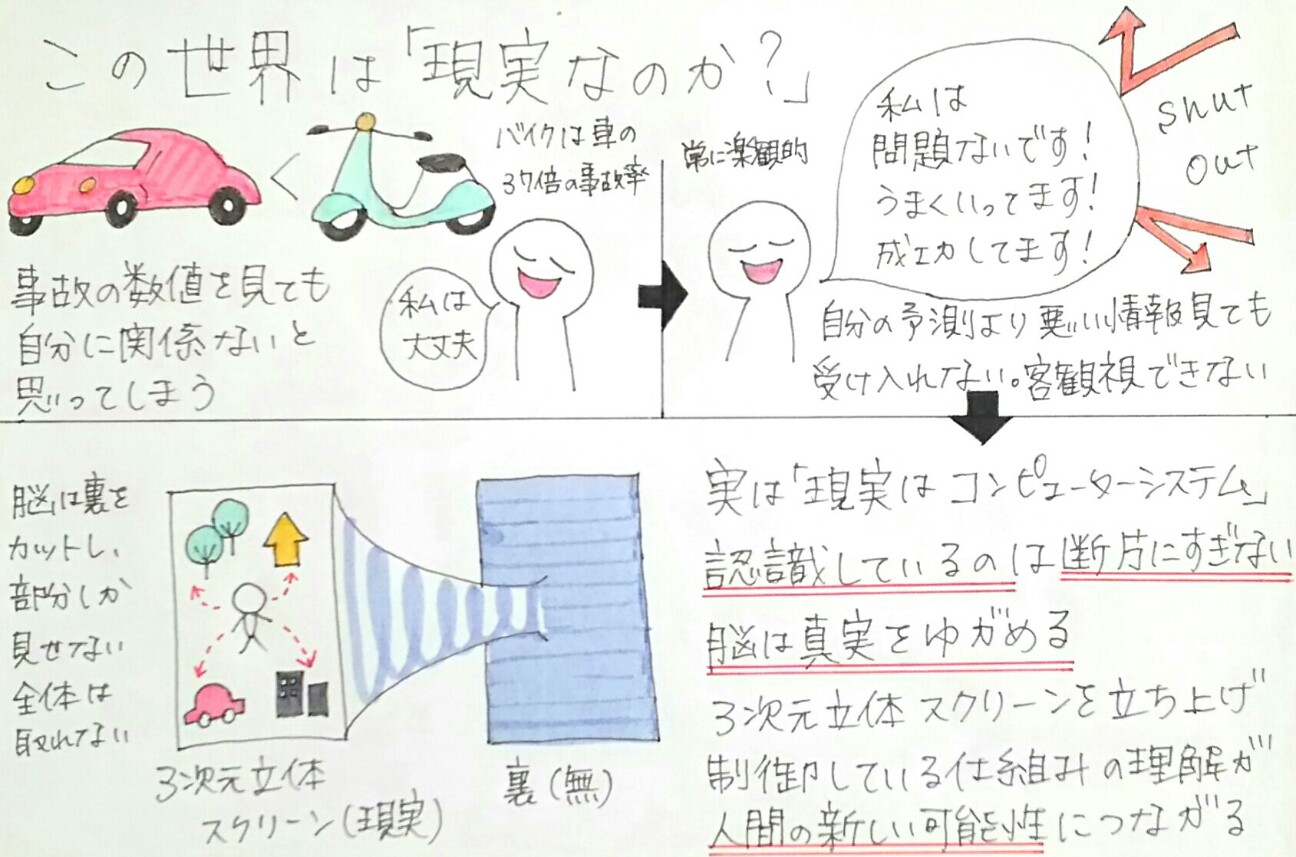 この世界は「現実なのか?」
バイクは車の
37倍の事故率
事故の数値を見ても
自分に関係ないと
思ってしまう
私は
大丈夫
常に楽観的
私は
問題ないです!
うまくいってます!
成功してます!
shut
out
自分の予測より悪い情報見ても
受け入れない。客観視できない
脳は裏を
カットし、
部分しか
見せてない
全体は
取れてない
3次元立体
スクリーン(現実)
裏(無)
実は「現実はコンピューターシステム」
認識しているのは断片にすぎない
脳は真実をゆがめる
3次元立体スクリーンを立ち上げ
制御している仕組みの理解が
人間の新しい可能性につながる